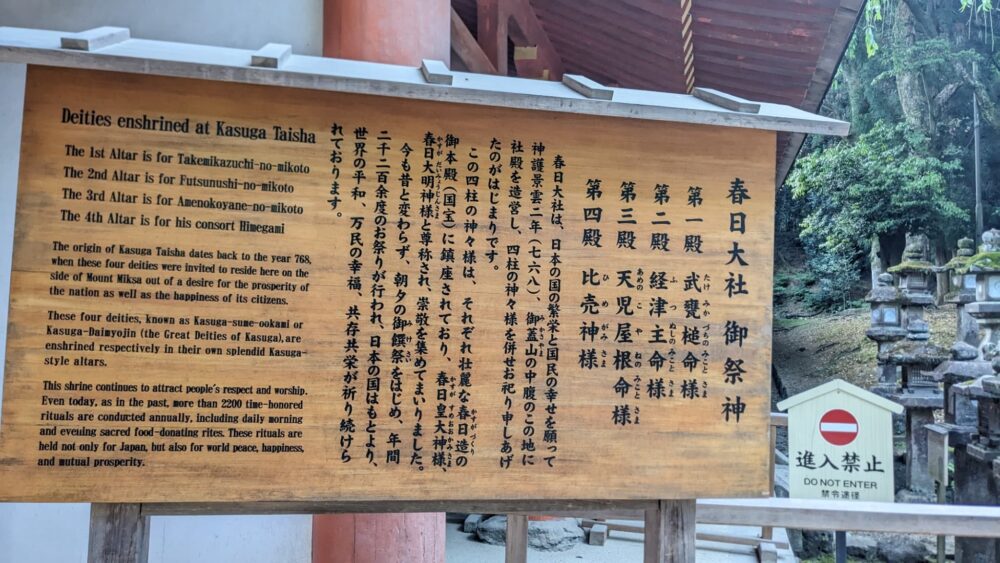 Deities enshrined at Kasuga Taisha
The 1st Altar is for Takemikazuchi-no-mikoto
The 2nd Altar is for Futsunushi-no-mikoto
The 3rd Altar is for Amenokoyane-no-mikoto
The 4th Altar is for his consort Himegami
The origin of Kasuga Taisha dates back to the year 768,
when these four deities were invited to reside here on the
side of Mount Miksa out of a desire for the prosperity of
the nation as well as the happiness of its citizens.
These four deities, known as Kasuga-sume-ookami or
Kasuga-Daimyojin (the Great Deities of Kasuga), are
enshrined respectively in their own splendid Kasuga-
style altars.
This shrine continues to attract people's respect and worship.
Even today, as in the past, more than 2200 time-honored
rituals are conducted annually, including daily morning
and eveuing sacred food-donating rites. These rituals are
held not only for Japan, but also for world peace, happiness,
and mutual prosperity.
春日大社 御祭神
第一殿 武甕槌命様
たけみかづちのみことさま
第二殿 経津主命様
ふつぬしのみことさま
第三殿 天児屋根命様
あめのこやねのみことさま
第四殿 比売神様
ひめがみさま
春日大社は、日本の国の繁栄と国民の幸せを願って
神護景雲二年(七六八)、御蓋山の中腹のこの地に
みかさやま
社殿を造営し、四柱の神々様を併せお祀り申しあげ
たのがはじまりです。
この四柱の神々様は、それぞれ壮麗な春日造の
かすがづくり
御本殿(国宝)に鎮座されており、春日皇大神様、
かすがすめおおかみさま
春日大明神様と尊称され、崇敬を集めてまいりました。
かすがだいみょうじんさま
今も昔と変わらず、朝夕の御饌祭をはじめ、年間
みけさい
二千二百余度のお祭りが行われ、日本の国はもとより、
世界の平和、万民の幸福、共存共栄が祈り続けら
れております。
進入禁止
DO NOT ENTER
禁令速径